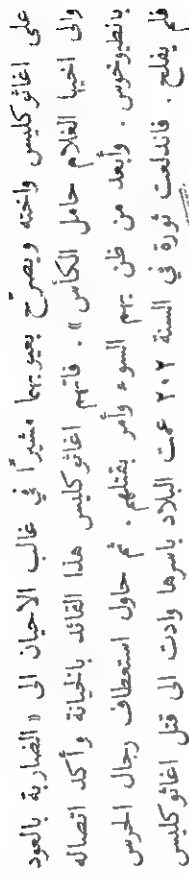 على اغاثوكليس واخته ويصرّح بعيوبهما مشيراً في غالب الاحيان الى «الضاربة بالعود
والى اخيها الغلام حامل الكأس» . فاتهم اغاثوكليس هذا القائد بالخيانة وأكد اتصاله
بانطيوخوس . وأبعد من ظن بهم السوء وأمر بقتلهم . ثم حاول استعطاف رجال الحرس
فلم يفلح . فاندلعت ثورة في السنة ٢٠٢ عمت البلاد باسرها وادت الى قتل اغاثوكليس